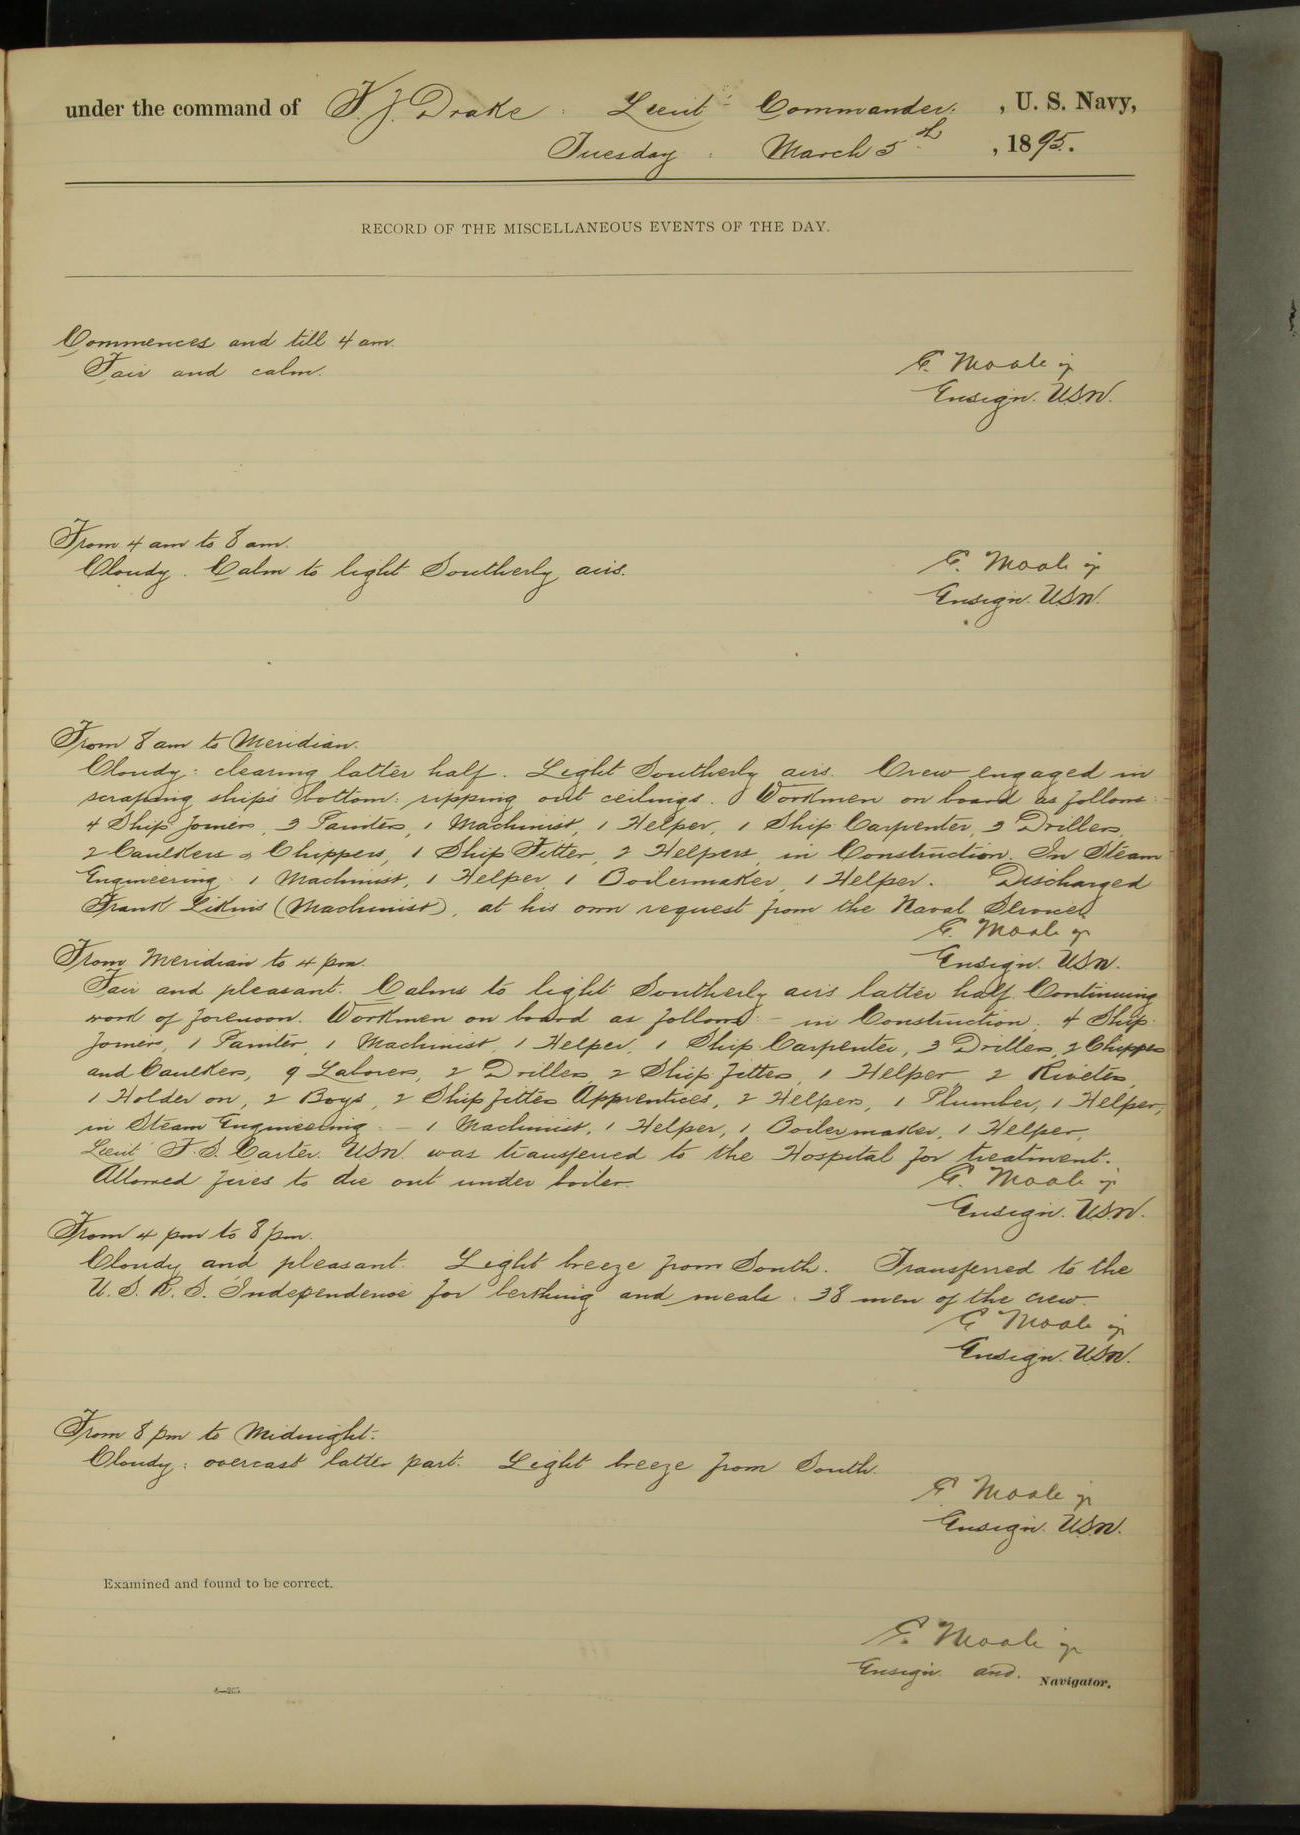 under the command of F. J. Drake : Lieut - Commander. , U. S. Navy,
Tuesday : March 5th , 1895.
RECORD OF THE MISCELLANEOUS EVENTS OF THE DAY.
Commences and till 4 am.
Fair and calm.
E. Moale jr
Ensign. U.S.N.
From 4 am to 8 am.
Cloudy. Calm to light Southerly airs.
E. Moale jr
Ensign. U.S.N.
From 8 am to Meridian.
Cloudy: clearing latter half. Light Southerly airs. Crew engaged in
scraping ship's bottom: ripping out ceilings. Workmen on board as follows:-
4 Ship Joiners, 3 Painters, 1 Machinist, 1 Helper, 1 Ship Carpenter, 3 Drillers,
2 Caulkers & Chippers, 1 Ship Fitter, 2 Helpers, in Construction. In Steam
Engineering: 1 Machinist, 1 Helper, 1 Boilermaker, 1 Helper. Discharged
Frank (Machinist), at his own request from the Naval Service.
E. Moale jr
Ensign. U.S.N.
From Meridian to 4 pm.
Fair and pleasant. Calms to light Southerly airs latter half. Continuing
work of forenoon. Workmen on board as follows:- in Construction; 4 Ship
Joiners, 1 Painter, 1 Machinist, 1 Helper, 1 Ship Carpenter, 3 Drillers, 2 Chippers
and Caulkers, 9 Laborers, 2 Drillers, 2 Ship fitters, 1 Helper, 2 Riveters,
1 Holder on, 2 Boys, 2 Ship fitters Apprentices, 2 Helpers, 1 Plumber, 1 Helper,
in Steam Engineering:- 1 Machinist, 1 Helper, 1 Boilermaker, 1 Helper.
Lieut F. S. Carter. U.S.N. was transferred to the Hospital for treatment.
Allowed fires to die out under boiler.
E. Moale jr
Ensign. U.S.N.
From 4 pm to 8 pm.
Cloudy and pleasant. Light breeze from South. Transferred to the
U. S. R. S. Independence for berthing and meals. 38 men of the crew.
E Moale jr
Ensign. U.S.N.
From 8 pm to Midnight.
Cloudy: overcast latter part. Light breeze from South.
E Moale jr
Ensign. U.S.N.
Examined and found to be correct.
E. Moale jr
Ensign and. Navigator.